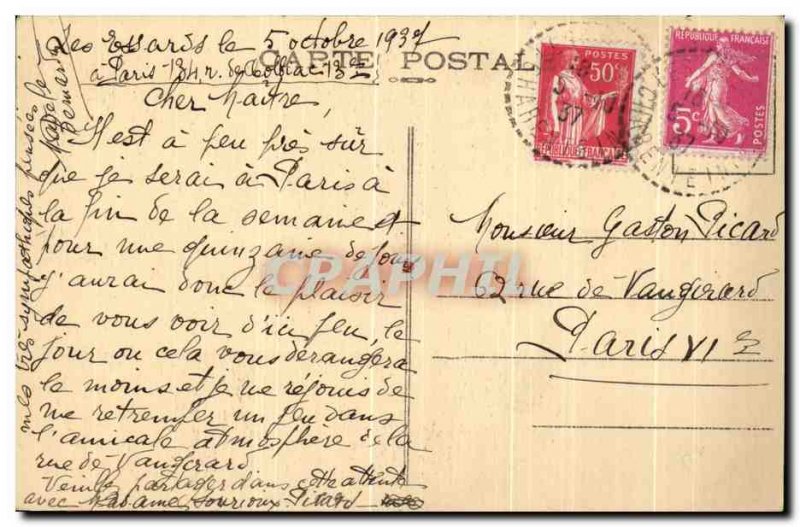 Les Essards le 5 octobre 1937
à Paris 134, r. de 13e
CARTE POSTALE
Cher Maître,
Il est à peu près sûr
que je serai à Paris à
la fin de la semaine et
pour une quinzaine de jours
j'aurai donc le plaisir
de vous voir d'ici peu, le
jour où cela vous dérangera
le moins et je me réjouis de
me retremper un peu dans
l'amicale atmosphère de la
rue de Vaugirard
Veuillez partager dans cette attente
avec Madame Picard
mes très sympathiques pensées
POSTES
50c
RÉPUBLIQUE FRANÇAISE
RÉPUBLIQUE FRANÇAISE
5c
POSTES
37
Monsieur Gaston Picard
62 rue de Vaugirard
Paris VIe
CPAPHIL